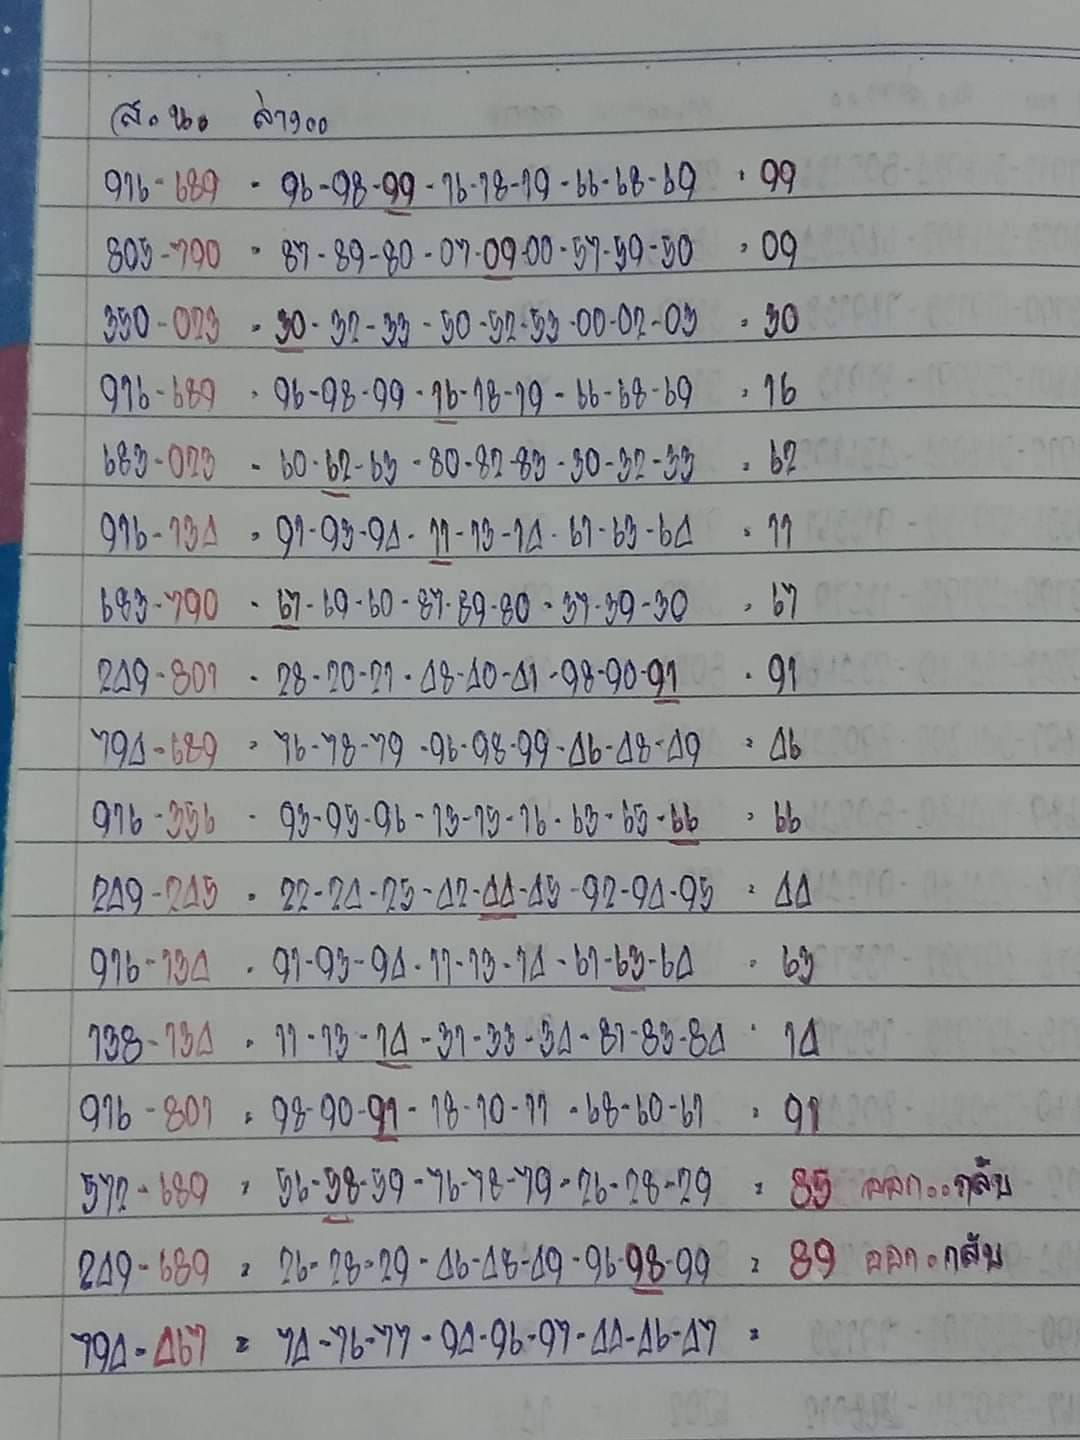 ส.น. ล่าง..
916-689 = 96-98-99-16-18-19-66-68-69 = 99
805-790 = 87-89-80-07-09-00-57-59-50 = 09
350-023 = 30-32-33-50-52-53-00-02-03 = 30
916-689 = 96-98-99-16-18-19-66-68-69 = 16
683-023 = 60-62-63-80-82-83-30-32-33 = 62
916-134 = 91-93-94-11-13-14-61-63-64 = 11
683-790 = 67-69-60-87-89-80-37-39-30 = 67
249-801 = 28-20-21-48-40-41-98-90-91 = 91
794-689 = 76-78-79-96-98-99-46-48-49 = 46
916-356 = 93-95-96-13-15-16-63-65-66 = 66
249-245 = 22-24-25-42-44-45-92-94-95 = 44
916-134 = 91-93-94-11-13-14-61-63-64 = 63
138-134 = 11-13-14-31-33-34-81-83-84 = 14
916-801 = 98-90-91-18-10-11-68-60-61 = 91
572-689 = 56-58-59-76-78-79-26-28-29 = 85 ออก..กลับ
249-689 = 26-28-29-46-48-49-96-98-99 = 89 ออก.กลับ
794-467 = 74-76-77-94-96-97-44-46-47 =